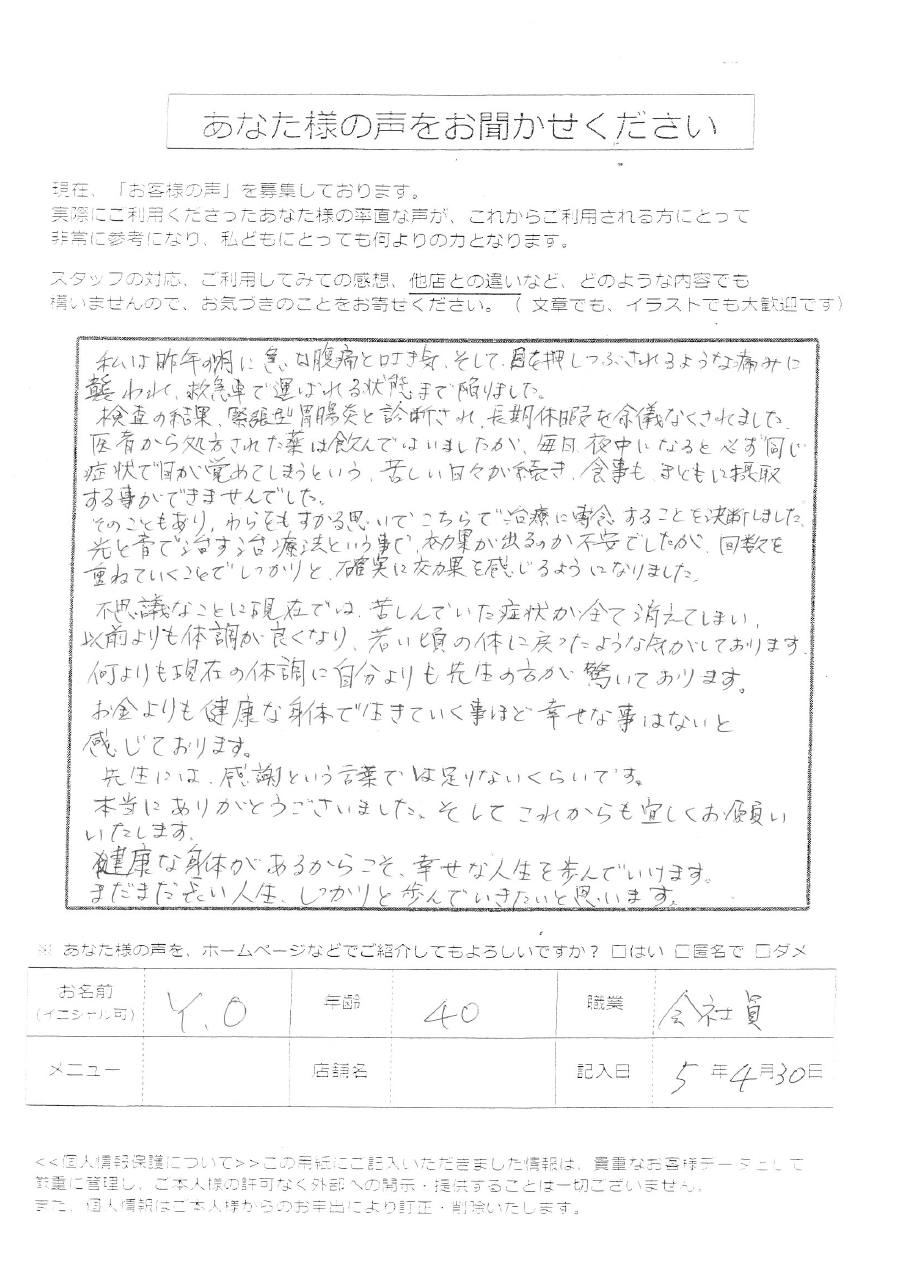 あなた様の声をお聞かせください
現在、「お客様の声」を募集しております。
実際にご利用くださったあなた様の率直な声が、これからご利用される方にとって
非常に参考になり、私どもにとっても何よりの力となります。
スタッフの対応、ご利用してみての感想、他店との違いなど、どのような内容でも
構いませんので、お気づきのことをお寄せください。（文章でも、イラストでも大歓迎です）
私は昨年の明に急な腹痛と吐き気、そして、目を押しつぶされるような痛みに
襲われ、救急車で運ばれる状態まで陥りました。
検査の結果、緊張型胃腸炎と診断され、長期休暇を余儀なくされました。
医者から処方された薬は飲んではいましたが、毎日、夜中になると必ず同じ
症状で目が覚めてしまうという、苦しい日々が続き、食事も、まともに摂取
する事ができませんでした。
そのこともあり、わらをもすがる思いでこちらで治療に専念することを決断しました。
光と音で治す治療法という事で、効果が出るのか不安でしたが、回数を
重ねていくことでしっかりと、確実に効果を感じるようになりました。
不思議なことに現在では、苦しんでいた症状が全て消えてしまい、
以前よりも体調が良くなり、若い頃の体に戻ったような気がしております。
何よりも現在の体調に自分よりも先生の方が驚いております。
お金よりも健康な身体で生きていく事ほど幸せな事はないと
感じております。
先生には、感謝という言葉では足りないくらいです。
本当にありがとうございました。そしてこれからも宜しくお願い
いたします。
健康な身体があるからこそ、幸せな人生を歩んでいけます。
まだまだ長い人生、しっかりと歩んでいきたいと思います。
※ あなた様の声を、ホームページなどでご紹介してもよろしいですか？ □はい □匿名で □ダメ
お名前 (イニシャル可) Y.O 年齢 40 職業 会社員
メニュー 店舗名 記入日 5年4月30日
<<個人情報保護について>>この用紙にご記入いただきました情報は、貴重なお客様データとして
厳重に管理し、ご本人様の許可なく外部への開示・提供することは一切ございません。
また、個人情報はご本人様からのお申出により訂正・削除いたします。